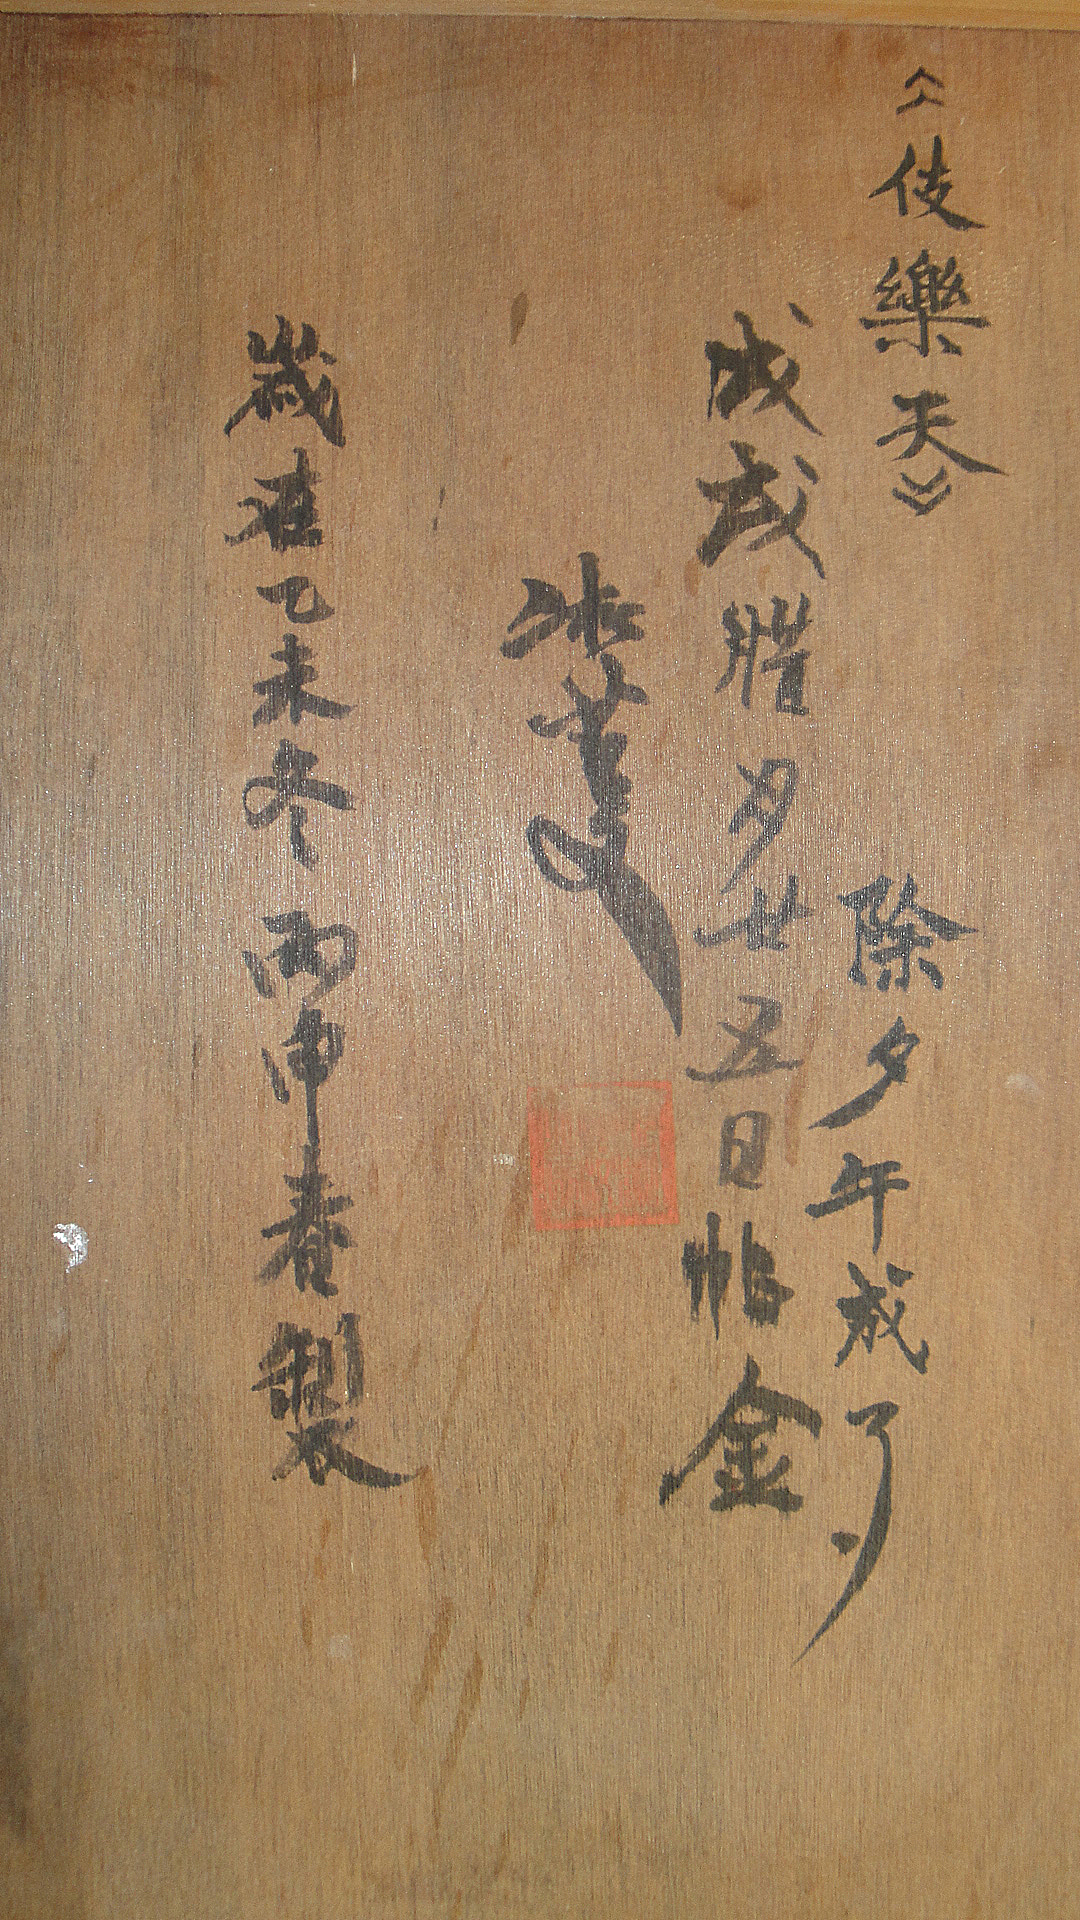 《伎樂天》
除夕午成了
戊戌腊月廿五日帖金
歲在乙未冬丙申春製